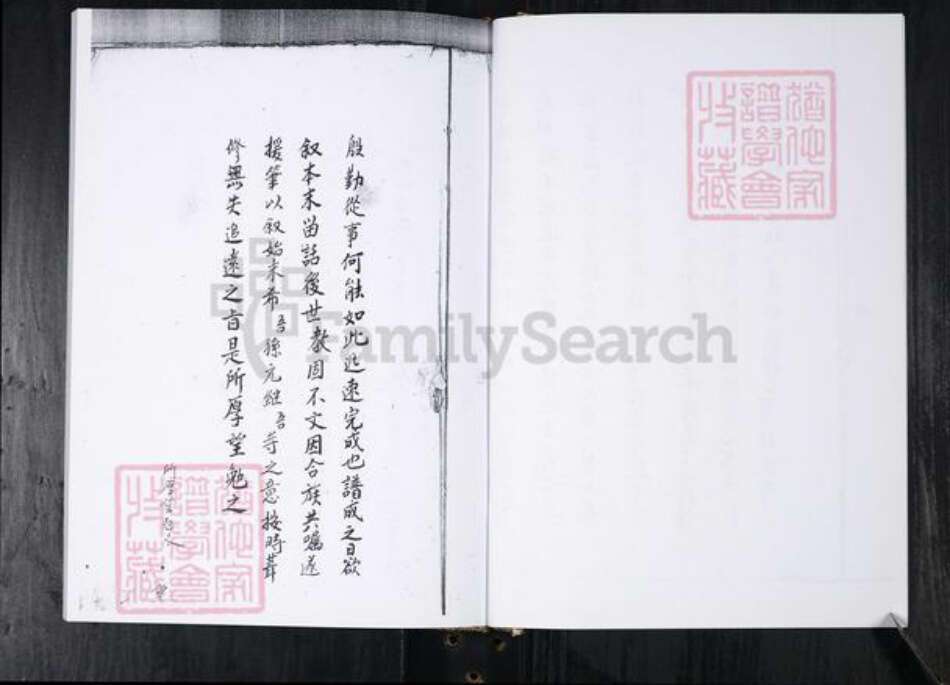 殷勤從事何能如此迅速完成也譜成之日欲
叙本末留話後世教固不文因合族共囑遂
援筆以叙始末希吾孫元繼吾等之意按時葺
修無失追遠之旨是所厚望勉之
所厚望勉之
猶他家
譜學會
收藏
猶他家
譜學會
收藏
FamilySearch